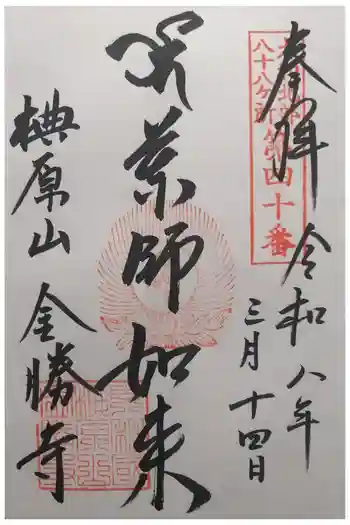 奉拝
令和八年
三月十四日
八十八ケ所第四十番
薬師如来
椣原山
金勝寺